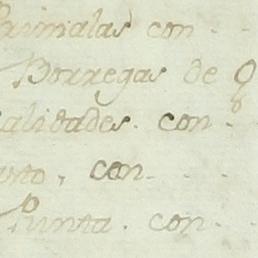 Primalas con - -
Borregas de Q
alidades. con -
unto, con - - -
Punta. con - -